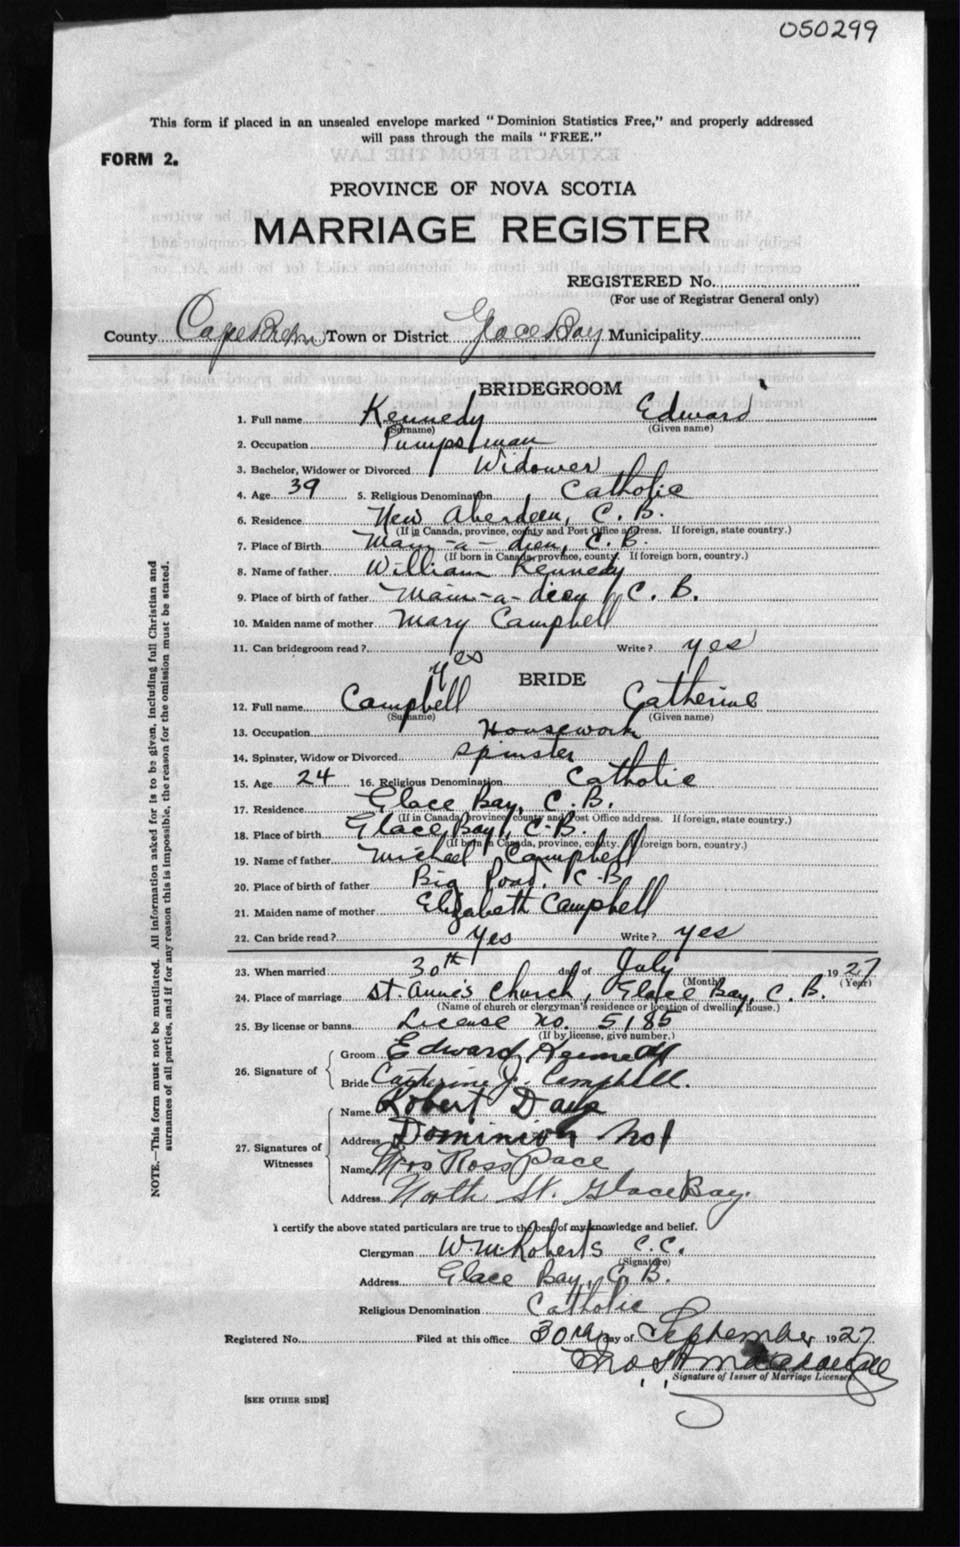 050299
This form if placed in an unsealed envelope marked "Dominion Statistics Free," and properly addressed
will pass through the mails "FREE."
FORM 2.
PROVINCE OF NOVA SCOTIA
MARRIAGE REGISTER
REGISTERED No.
(For use of Registrar General only)
County Cape Breton Town or District Glace Bay Municipality
BRIDEGROOM
1. Full name Kennedy Edward
(Surname) (Given name)
2. Occupation Pumpsman
3. Bachelor, Widower or Divorced Widower
4. Age 39 5. Religious Denomination Catholic
6. Residence New Aberdeen, C. B.
(If in Canada, province, county and Post Office address. If foreign, state country.)
7. Place of Birth Main-a-dieu, C. B.
(If born in Canada, province, county. If foreign born, country.)
8. Name of father William Kennedy
9. Place of birth of father Main-a-dieu, C. B.
10. Maiden name of mother Mary Campbell
11. Can bridegroom read? yes Write? yes
BRIDE
12. Full name Campbell Catherine
(Surname) (Given name)
13. Occupation Housework
14. Spinster, Widow or Divorced Spinster
15. Age 24 16. Religious Denomination Catholic
17. Residence Glace Bay, C. B.
(If in Canada, province, county and Post Office address. If foreign, state country.)
18. Place of birth Glace Bay, C. B.
(If born in Canada, province, county. If foreign born, country.)
19. Name of father Michael Campbell
20. Place of birth of father Big Pond, C. B.
21. Maiden name of mother Elizabeth Campbell
22. Can bride read? Yes Write? yes
23. When married 30th day of July 1927
(Month) (Year)
24. Place of marriage St. Anne's Church, Glace Bay, C. B.
(Name of church or clergyman's residence or location of dwelling house.)
25. By license or banns License no. 5185
(If by license, give number.)
26. Signature of
Groom Edward Kennedy
Bride Catherine J. Campbell.
27. Signatures of Witnesses
Name Robert
Address Dominion No 1
Name Mrs Ross Pace
Address North St. Glace Bay.
I certify the above stated particulars are true to the best of my knowledge and belief.
Clergyman W. M. Roberts C.C.
(Signature)
Address Glace Bay, C. B.
Religious Denomination Catholic
Registered No. Filed at this office 30th day of September 1927
Signature of Issuer of Marriage Licenses
[SEE OTHER SIDE]
NOTE.—This form must not be mutilated. All information asked for is to be given, including full Christian and
surnames of all parties, and if for any reason this is impossible, the reason for the omission must be stated.